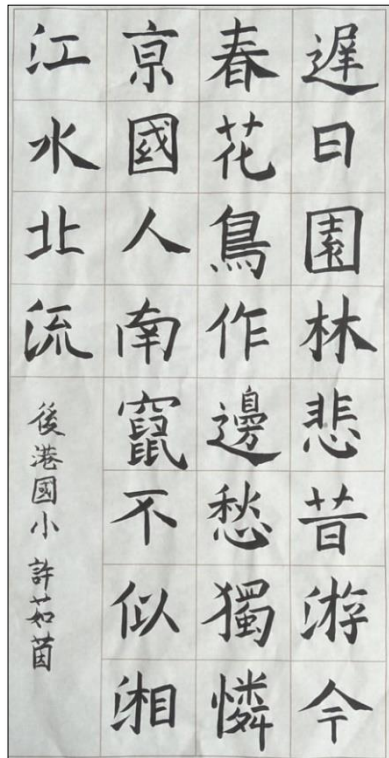 遲日園林悲昔游今
春花鳥作邊愁獨憐
京國人南竄不似湘
江水北流
後港國小 許茹茵